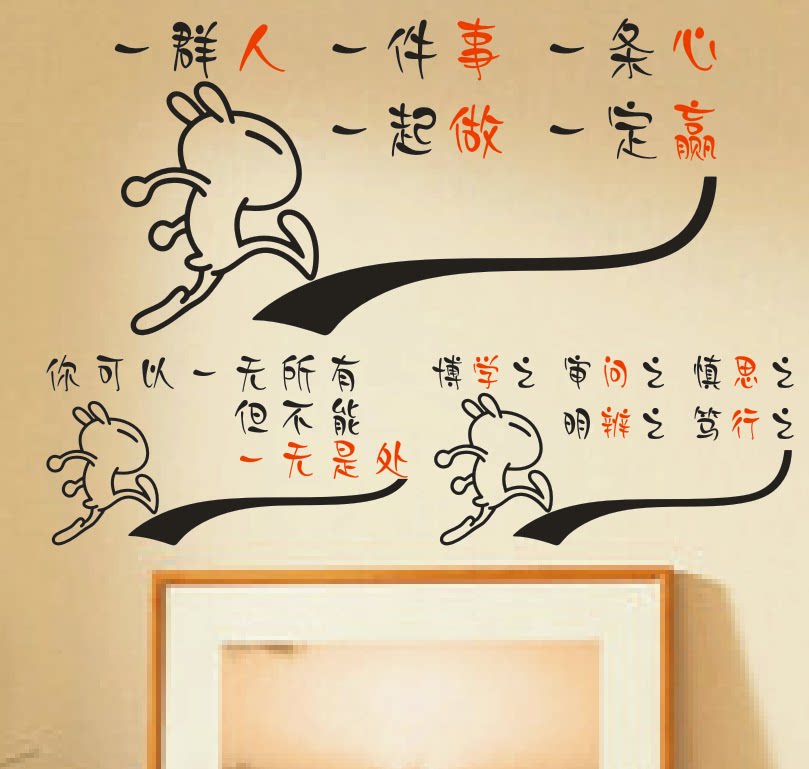 一群人 一件事 一条心
一起做 一定赢
你可以一无所有
但不能
一无是处
博学之 审问之 慎思之
明辨之 笃行之